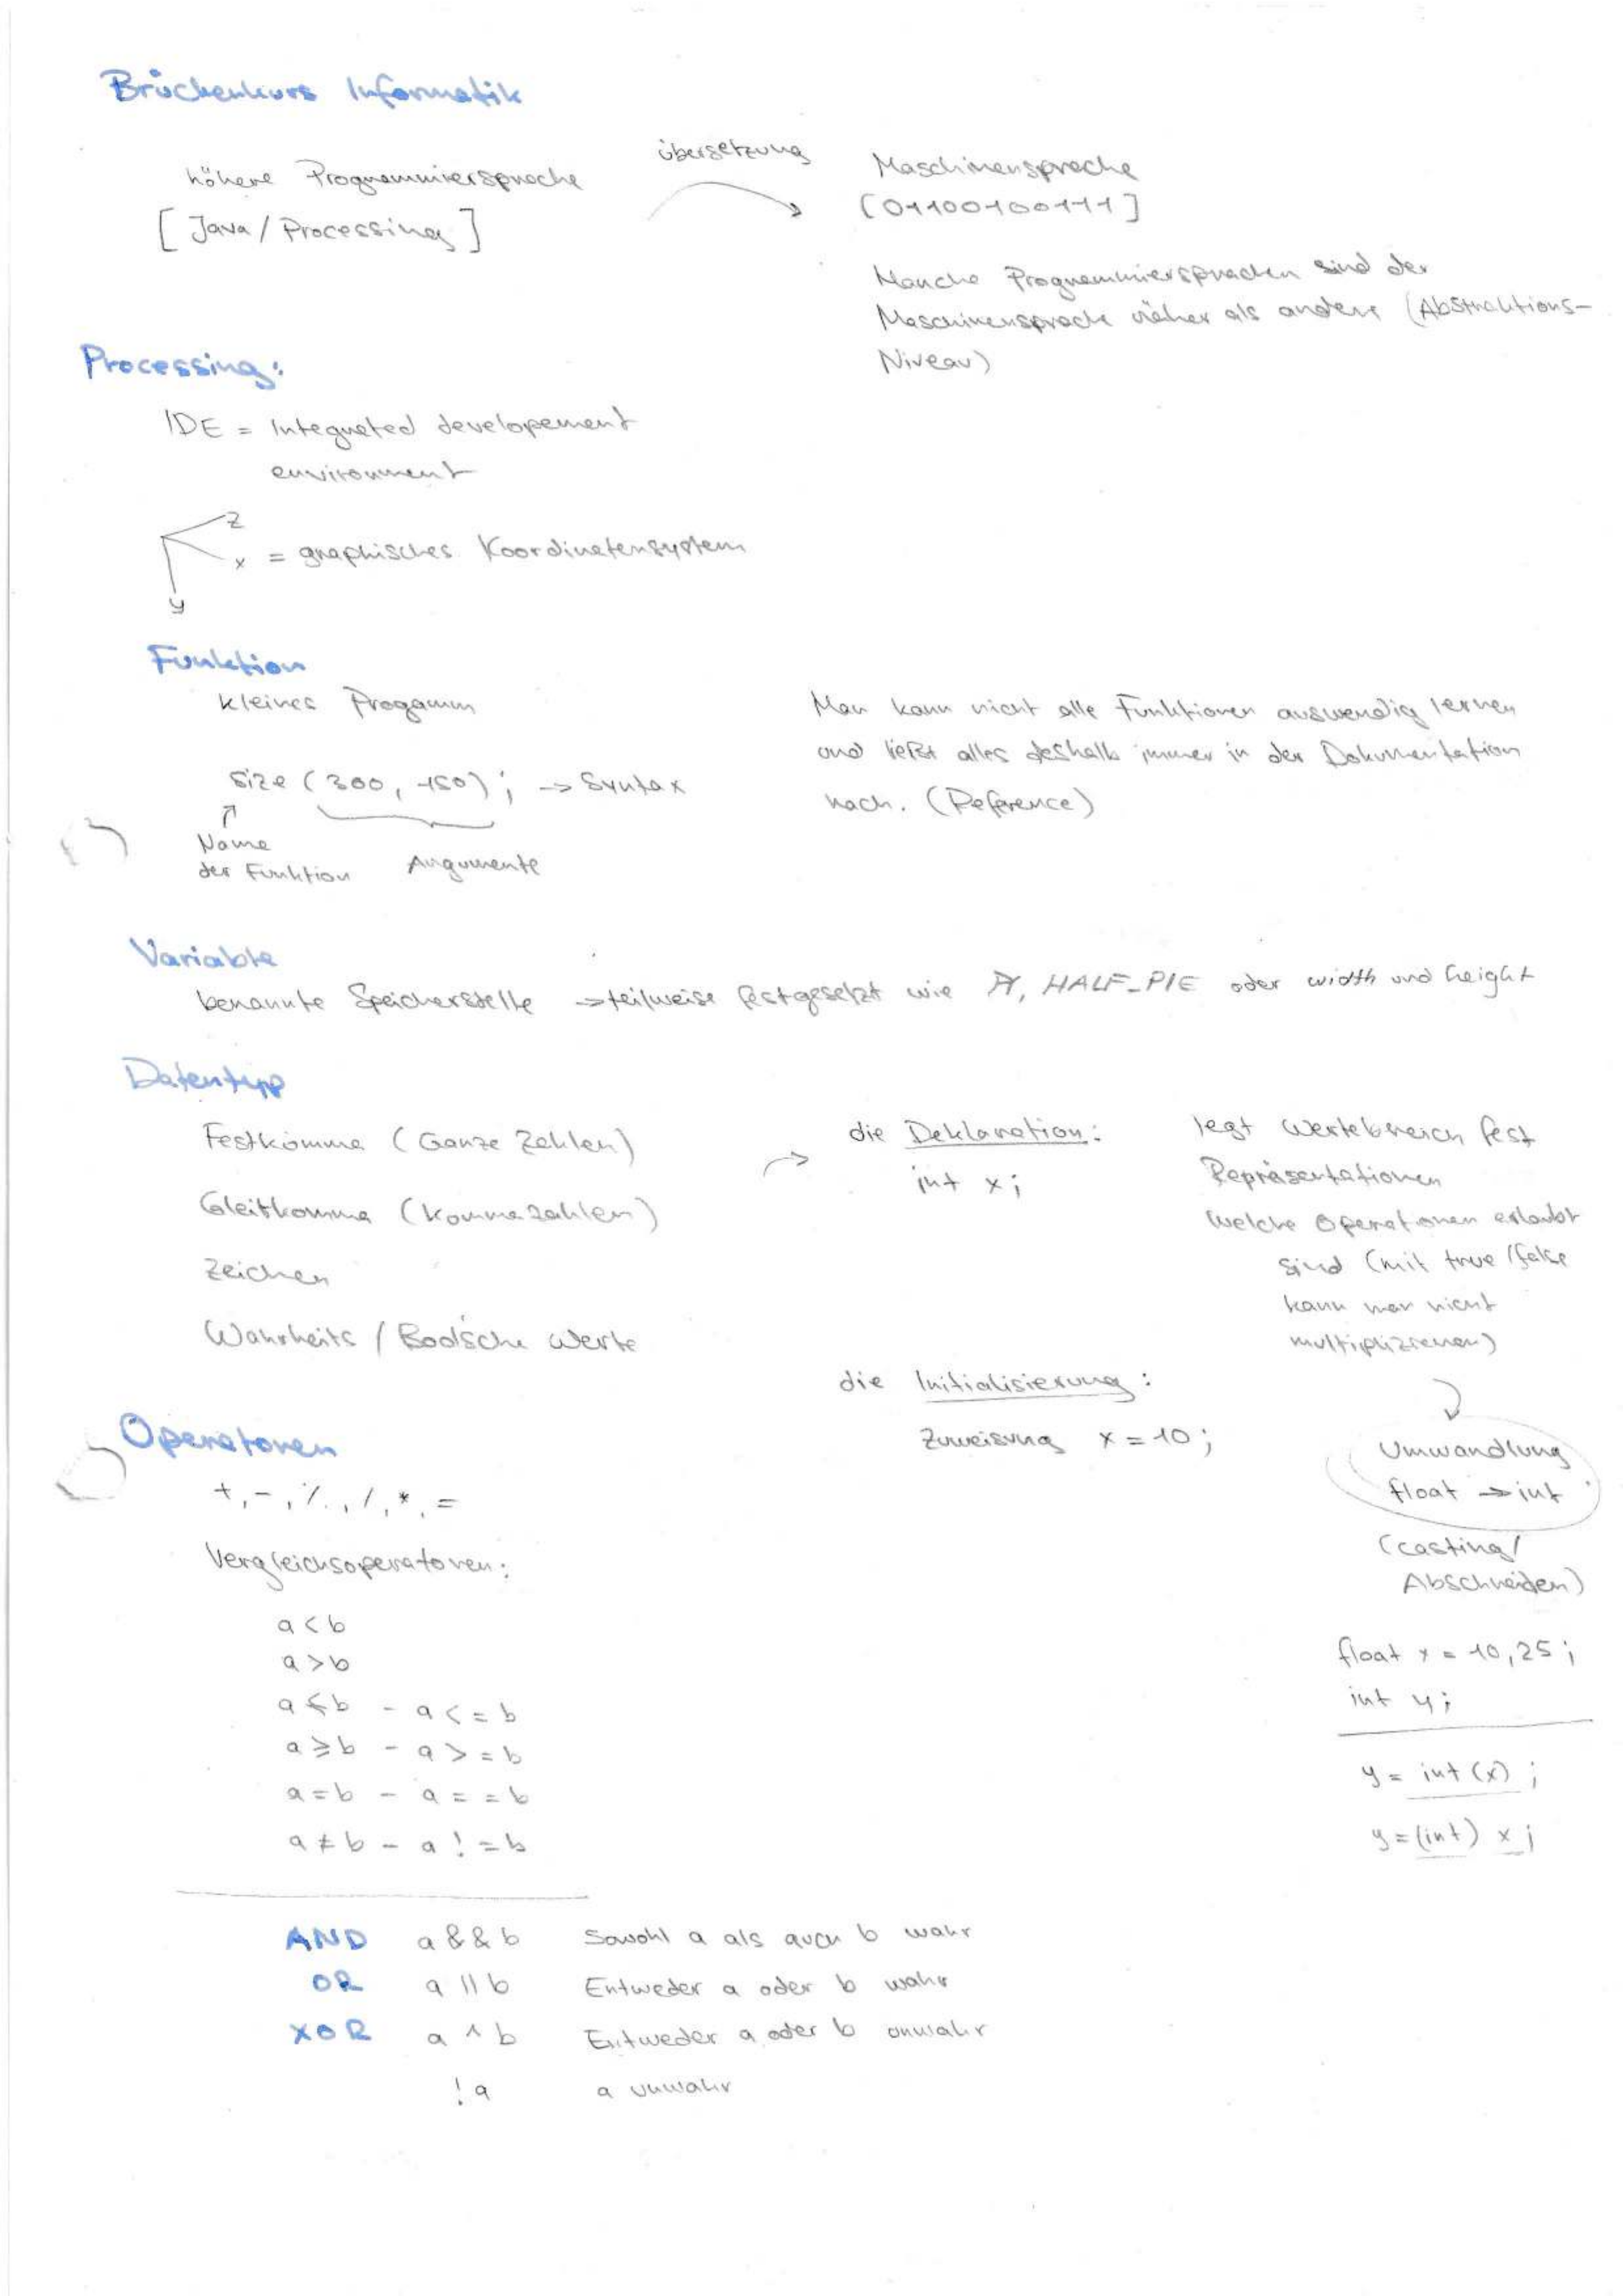 Brückenkurs Informatik
höhere Programmiersprache
[Java/Processing]
übersetzung
Maschinensprache
[01100100111]
Manche Programmiersprachen sind der
Maschinensprache näher als andere (Abstraktions-
Niveau)
Processing:
IDE = Integrated developement
environment
z
x = graphisches Koordinatensystem
y
Funktion
kleines Progamm
size (300, 150); -> Syntax
↑
Name
der Funktion Argumente
Man kann nicht alle Funktionen auswendig lernen
und ließt alles deshalb immer in der Dokumentation
nach. (Reference)
Variable
benannte Speicherstelle -> teilweise festgesetzt wie PI, HALF_PIE oder width und height
Datentyp
Festkomma (Ganze Zahlen)
Gleitkomma (Kommazahlen)
Zeichen
Wahrheits / Bool'sche Werte
die Deklaration:
int x;
legt Wertebereich fest
Repräsentationen
welche Operationen erlaubt
sind (mit true/false
kann man nicht
multiplizieren)
die Initialisierung:
Zuweisung x = 10;
Umwandlung
float -> int
(casting/
Abschneiden)
float x = 10,25;
int y;
y = int(x);
y = (int) x;
Operatoren
+, -, %, /, *, =
Vergleichsoperatoren:
a < b
a > b
a ≤ b - a <= b
a ≥ b - a >= b
a = b - a == b
a ≠ b - a != b
AND a && b Sowohl a als auch b wahr
OR a || b Entweder a oder b wahr
XOR a ^ b Entweder a oder b unwahr
!a a unwahr